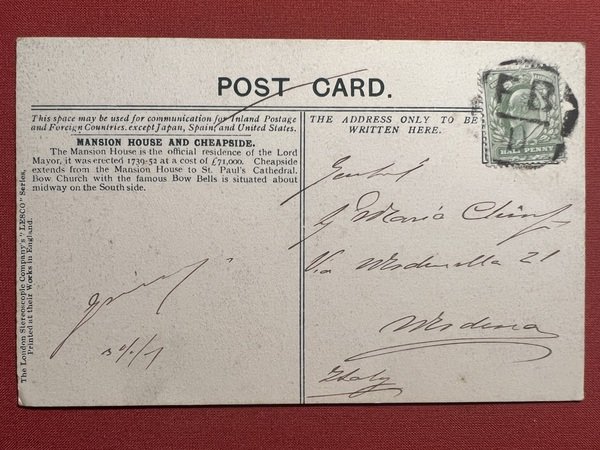 POST CARD.
This space may be used for communication for Inland Postage
and Foreign Countries, except Japan, Spain and United States.
MANSION HOUSE AND CHEAPSIDE.
The Mansion House is the official residence of the Lord
Mayor, it was erected 1739-52 at a cost of £71,000. Cheapside
extends from the Mansion House to St. Paul's Cathedral.
Bow Church with the famous Bow Bells is situated about
midway on the South side.
The London Stereoscopic Company's "LESCO" Series,
Printed at their Works in England.
THE ADDRESS ONLY TO BE
WRITTEN HERE.
F.B
HALF PENNY
Maria
Via 21
Modena
Italy